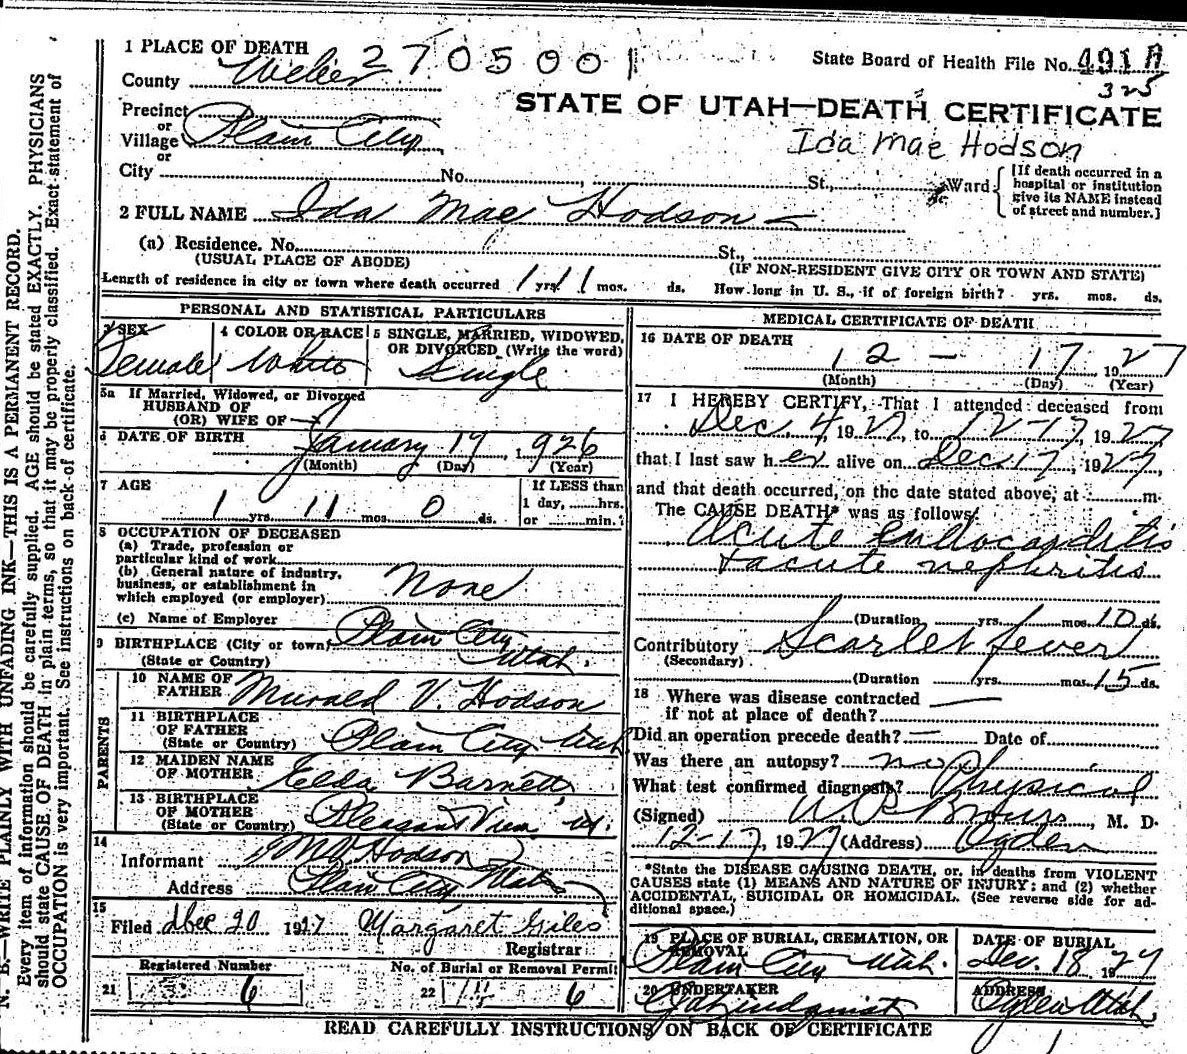 1 PLACE OF DEATH
2705001
State Board of Health File No. 491 A
325
County Weber
STATE OF UTAH—DEATH CERTIFICATE
Precinct
or
Village Plain City
Ida Mae Hodson
or
City No. St., Ward
[If death occurred in a hospital or institution give its NAME instead of street and number.]
2 FULL NAME Ida Mae Hodson
(a) Residence. No. St.,
(USUAL PLACE OF ABODE) (IF NON-RESIDENT GIVE CITY OR TOWN AND STATE)
Length of residence in city or town where death occurred 1 yrs. 11 mos. ds. How long in U. S., if of foreign birth? yrs. mos. ds.
PERSONAL AND STATISTICAL PARTICULARS
3 SEX
Female
4 COLOR OR RACE
White
5 SINGLE, MARRIED, WIDOWED,
OR DIVORCED (Write the word)
Single
5a If Married, Widowed, or Divorced
HUSBAND OF
(OR) WIFE OF
6 DATE OF BIRTH January 17, 1926
(Month) (Day) (Year)
7 AGE
1 yrs. 11 mos. 0 ds.
If LESS than
1 day, hrs.
or min.?
8 OCCUPATION OF DECEASED
(a) Trade, profession or
particular kind of work
(b) General nature of industry,
business, or establishment in
which employed (or employer) None
(c) Name of Employer
9 BIRTHPLACE (City or town) Plain City
(State or Country) Utah.
PARENTS
10 NAME OF
FATHER V. Hodson
11 BIRTHPLACE
OF FATHER
(State or Country) Plain City Utah
12 MAIDEN NAME
OF MOTHER Elda Barnett
13 BIRTHPLACE
OF MOTHER
(State or Country) Pleasant View, Ut.
14
Informant Hodson
Address Plain City Utah
15
Filed Dec 20 1927 Margaret Giles
Registrar
Registered Number No. of Burial or Removal Permit
21 6 22 6
MEDICAL CERTIFICATE OF DEATH
16 DATE OF DEATH
12 - 17, 1927
(Month) (Day) (Year)
17 I HEREBY CERTIFY, That I attended deceased from
Dec. 4, 1927, to 12-17, 1927
that I last saw her alive on Dec. 17, 1927,
and that death occurred, on the date stated above, at m.
The CAUSE DEATH* was as follows:
Acute Endocarditis
+ acute nephritis
(Duration yrs. mos. 10 ds.
Contributory Scarlet fever
(Secondary)
(Duration yrs. mos. 15 ds.
18 Where was disease contracted
if not at place of death?
Did an operation precede death? — Date of
Was there an autopsy? no
What test confirmed diagnosis? Physical
(Signed) , M. D.
12-17, 1927 (Address) Ogden
*State the DISEASE CAUSING DEATH, or, in deaths from VIOLENT
CAUSES state (1) MEANS AND NATURE OF INJURY; and (2) whether
ACCIDENTAL, SUICIDAL OR HOMICIDAL. (See reverse side for ad-
ditional space.)
19 PLACE OF BURIAL, CREMATION, OR
REMOVAL
Plain City Utah.
DATE OF BURIAL
Dec. 18 1927
20 UNDERTAKER
Lindquist
ADDRESS
Ogden Utah
READ CAREFULLY INSTRUCTIONS ON BACK OF CERTIFICATE
N. B.—WRITE PLAINLY WITH UNFADING INK—THIS IS A PERMANENT RECORD.
Every item of information should be carefully supplied. AGE should be stated EXACTLY. PHYSICIANS
should state CAUSE OF DEATH in plain terms, so that it may be properly classified. Exact statement of
OCCUPATION is very important. See instructions on back of certificate.